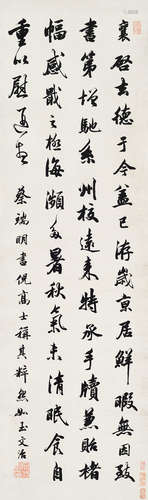 襄啓去德于今益已游歲京居鮮暇無因致
書第增馳系州校遠來特承手牘兼貽楮
幅感戢之極海瀕多暑秋氣未清眠食自
重以慰遠 蔡端明書倪高士稱其粹然如玉文治